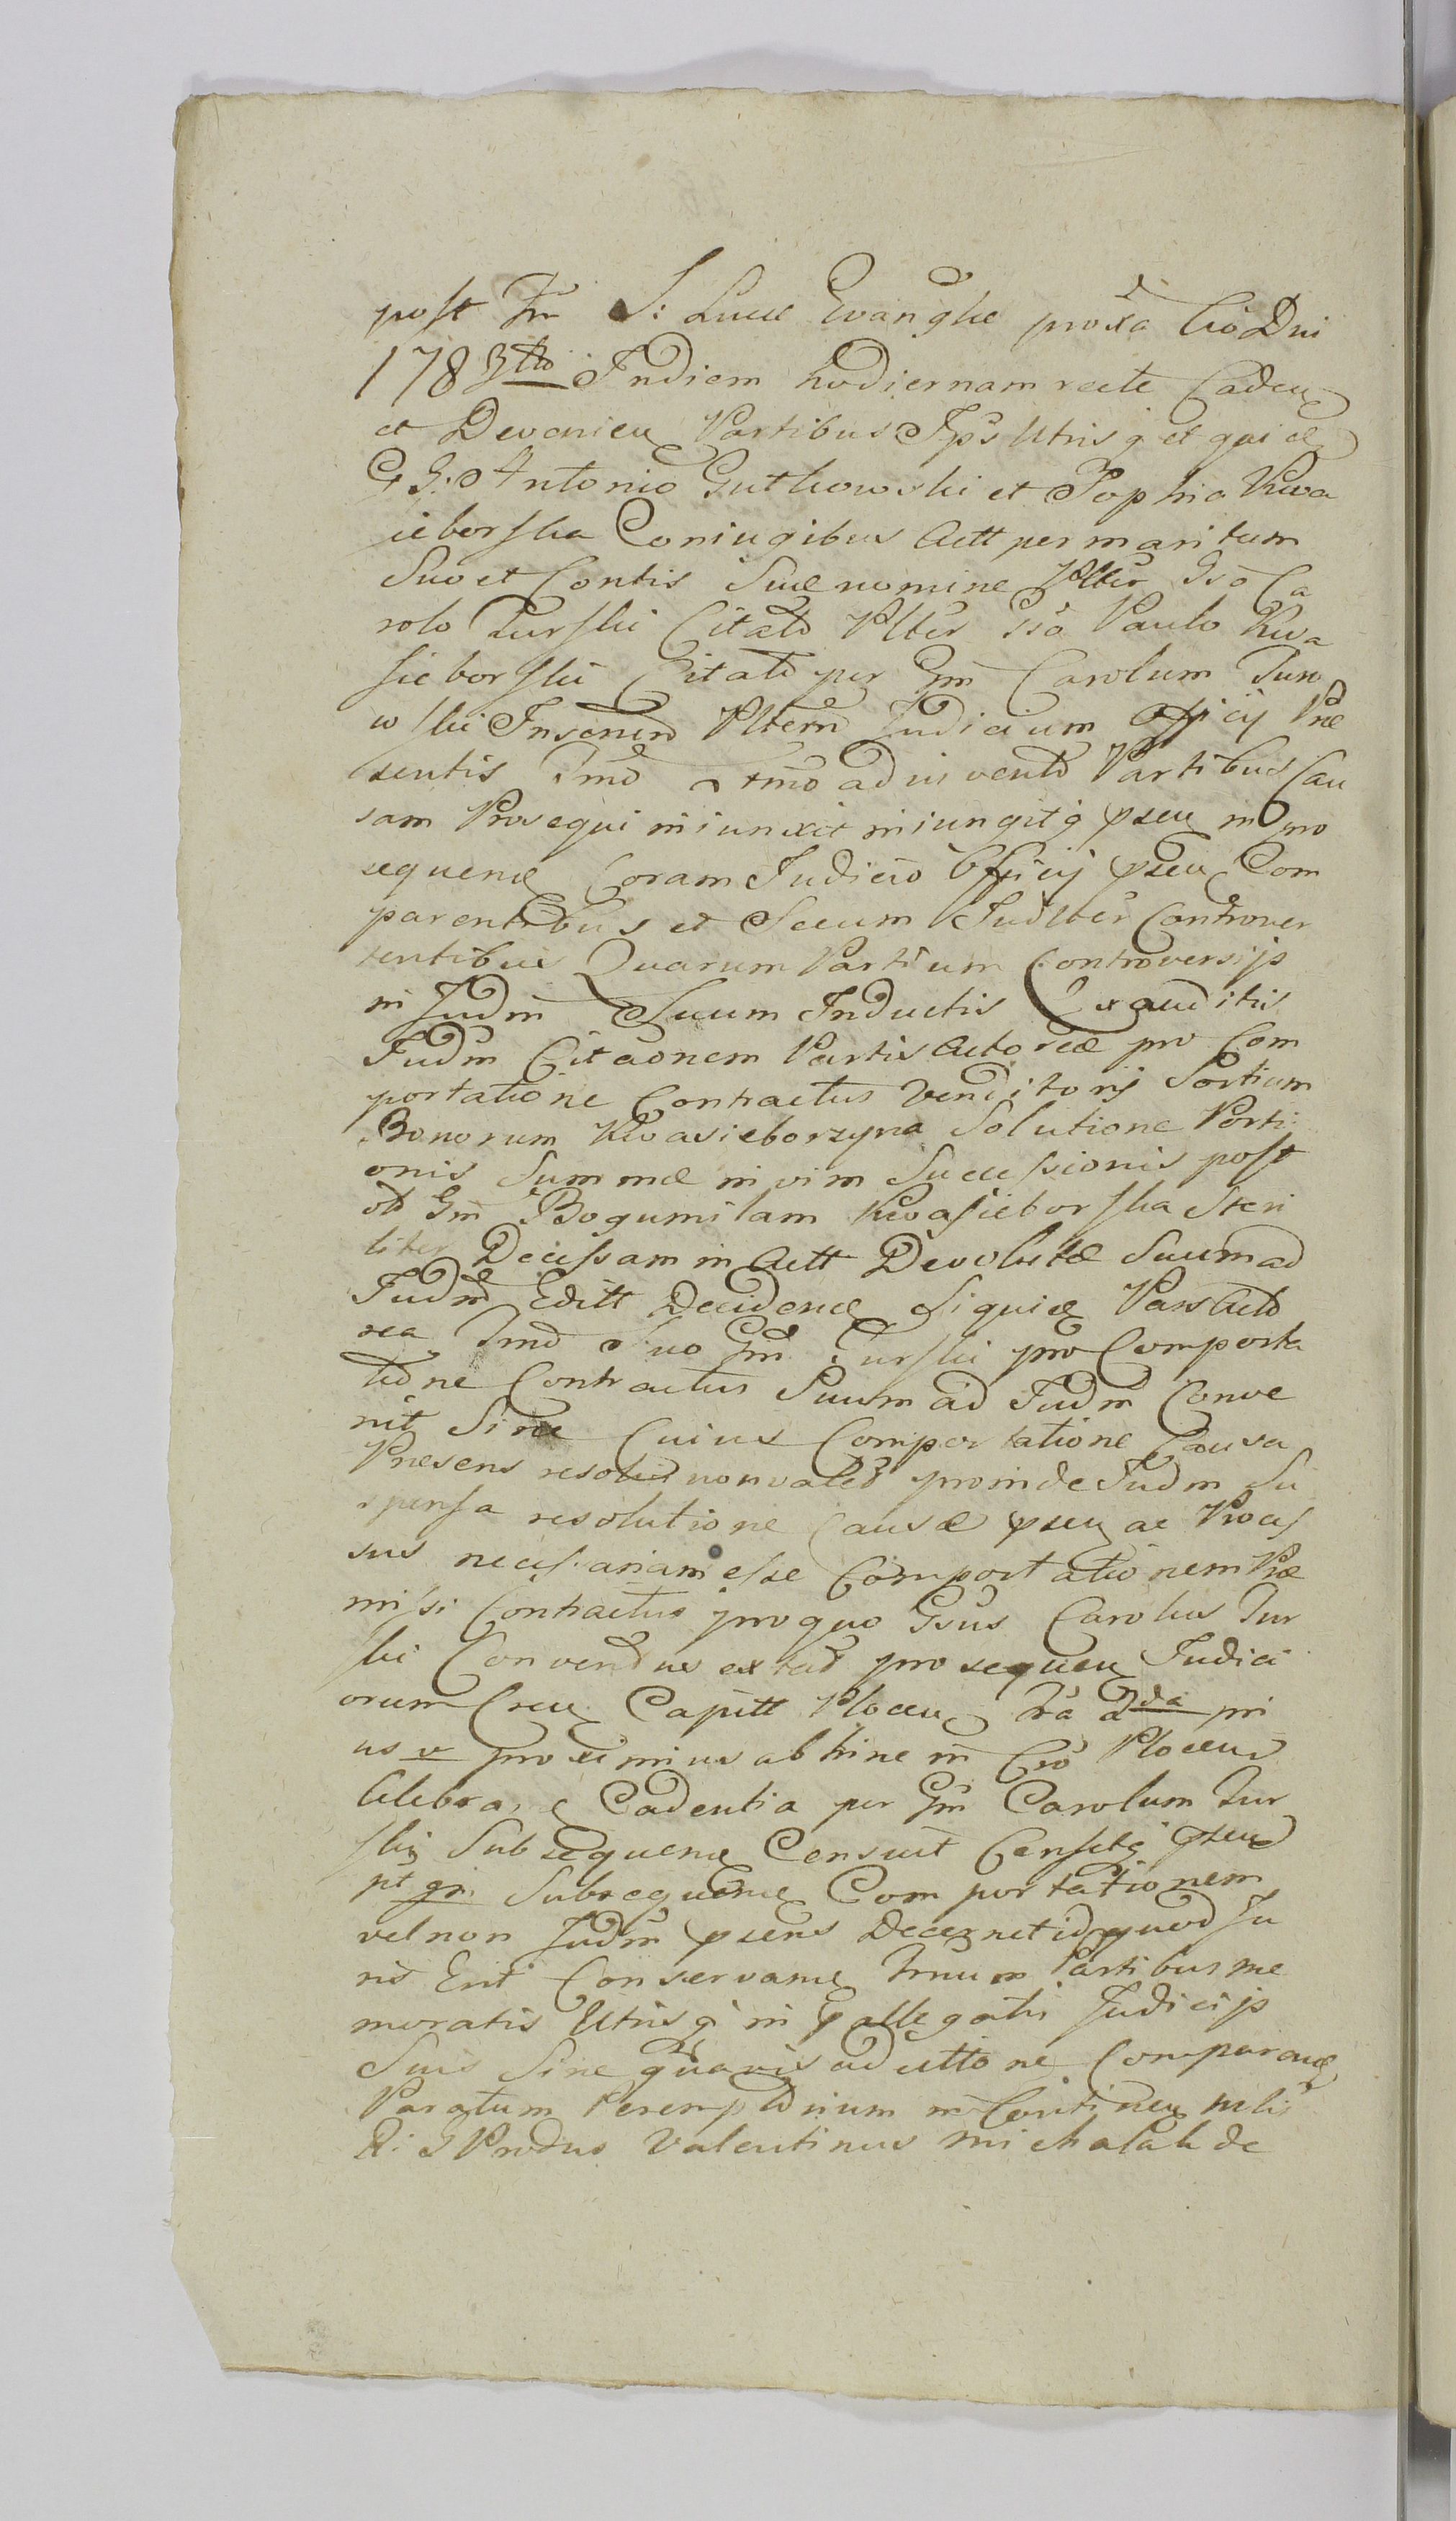 post Fm S: Lucæ Evanglæ proxa Ao Dni
1783tio Indiem hodiernam recte Caden
et Devenien Partibus Ipsis Utrisq et quidem
G G: Antonio Gutkowski et Sophia Kwa
sieborska Coniugibus Actt per maritum
Suo et Contis Suæ nomine Plter Gso Ca
rolo Turski Citato Plter Gso Paulo Kwa
sieborski Citato per Gm Carolum Tur
ski Plterm Judicium Officij Præ
sentis Tmo adinvento Partibus Cau
sam Prosequi iniunxit iniungitq psen in pro
sequene Coram Judicio Officij psen Com
parentibus et Secum Judlter Controver
tentibus Quarum Partium Controversijs
in Judm Suum Inductis Exauditis
Judm Citaonem Partis Actoreæ pro Com
portatione Contractus Venditorij Sortium
Bonorum Kwasieborzyna Solutione Porti
onis Summæ in vim Successionis post
ob Gm Bogumilam Kwasieborska Steri
liter Decessam in Actt Devolutæ Suum ad
Judm Editt Decidene Siquid Pars Acto
rea Tmo Suo Gm Turski pro Comporta
tione Contractus Suum ad Judm Conve
nit Sine Cuius Comportatione Causa
Præsens resolvi non valet proinde Judm Su
spensa resolutione Causæ psen ac Proces
sus necessariam esse Comportationem Præ
missi Contractus pro quo Gsus Carolus Tur
ski Convendus extat prosequen Judici
orum Cren Capitt Plocen Fra 2da pri
us v proximius abhinc in Cro Plocen
Celebran Cadentia per Gm Carolum Tur
ski Subsequene Censuit Censetq psen
pt gr. Subsequene Comportationem
vel non Judm psens Decernet id quod Ju
ris Erit Conservane Tmum Partibus me
moratis Utrisq in pallegatis Judicijs
Suis Sine quavis adcitione Comparane
Paratum Peremptorium in Continen nlis
R: G Produs Valentinus Michalak de